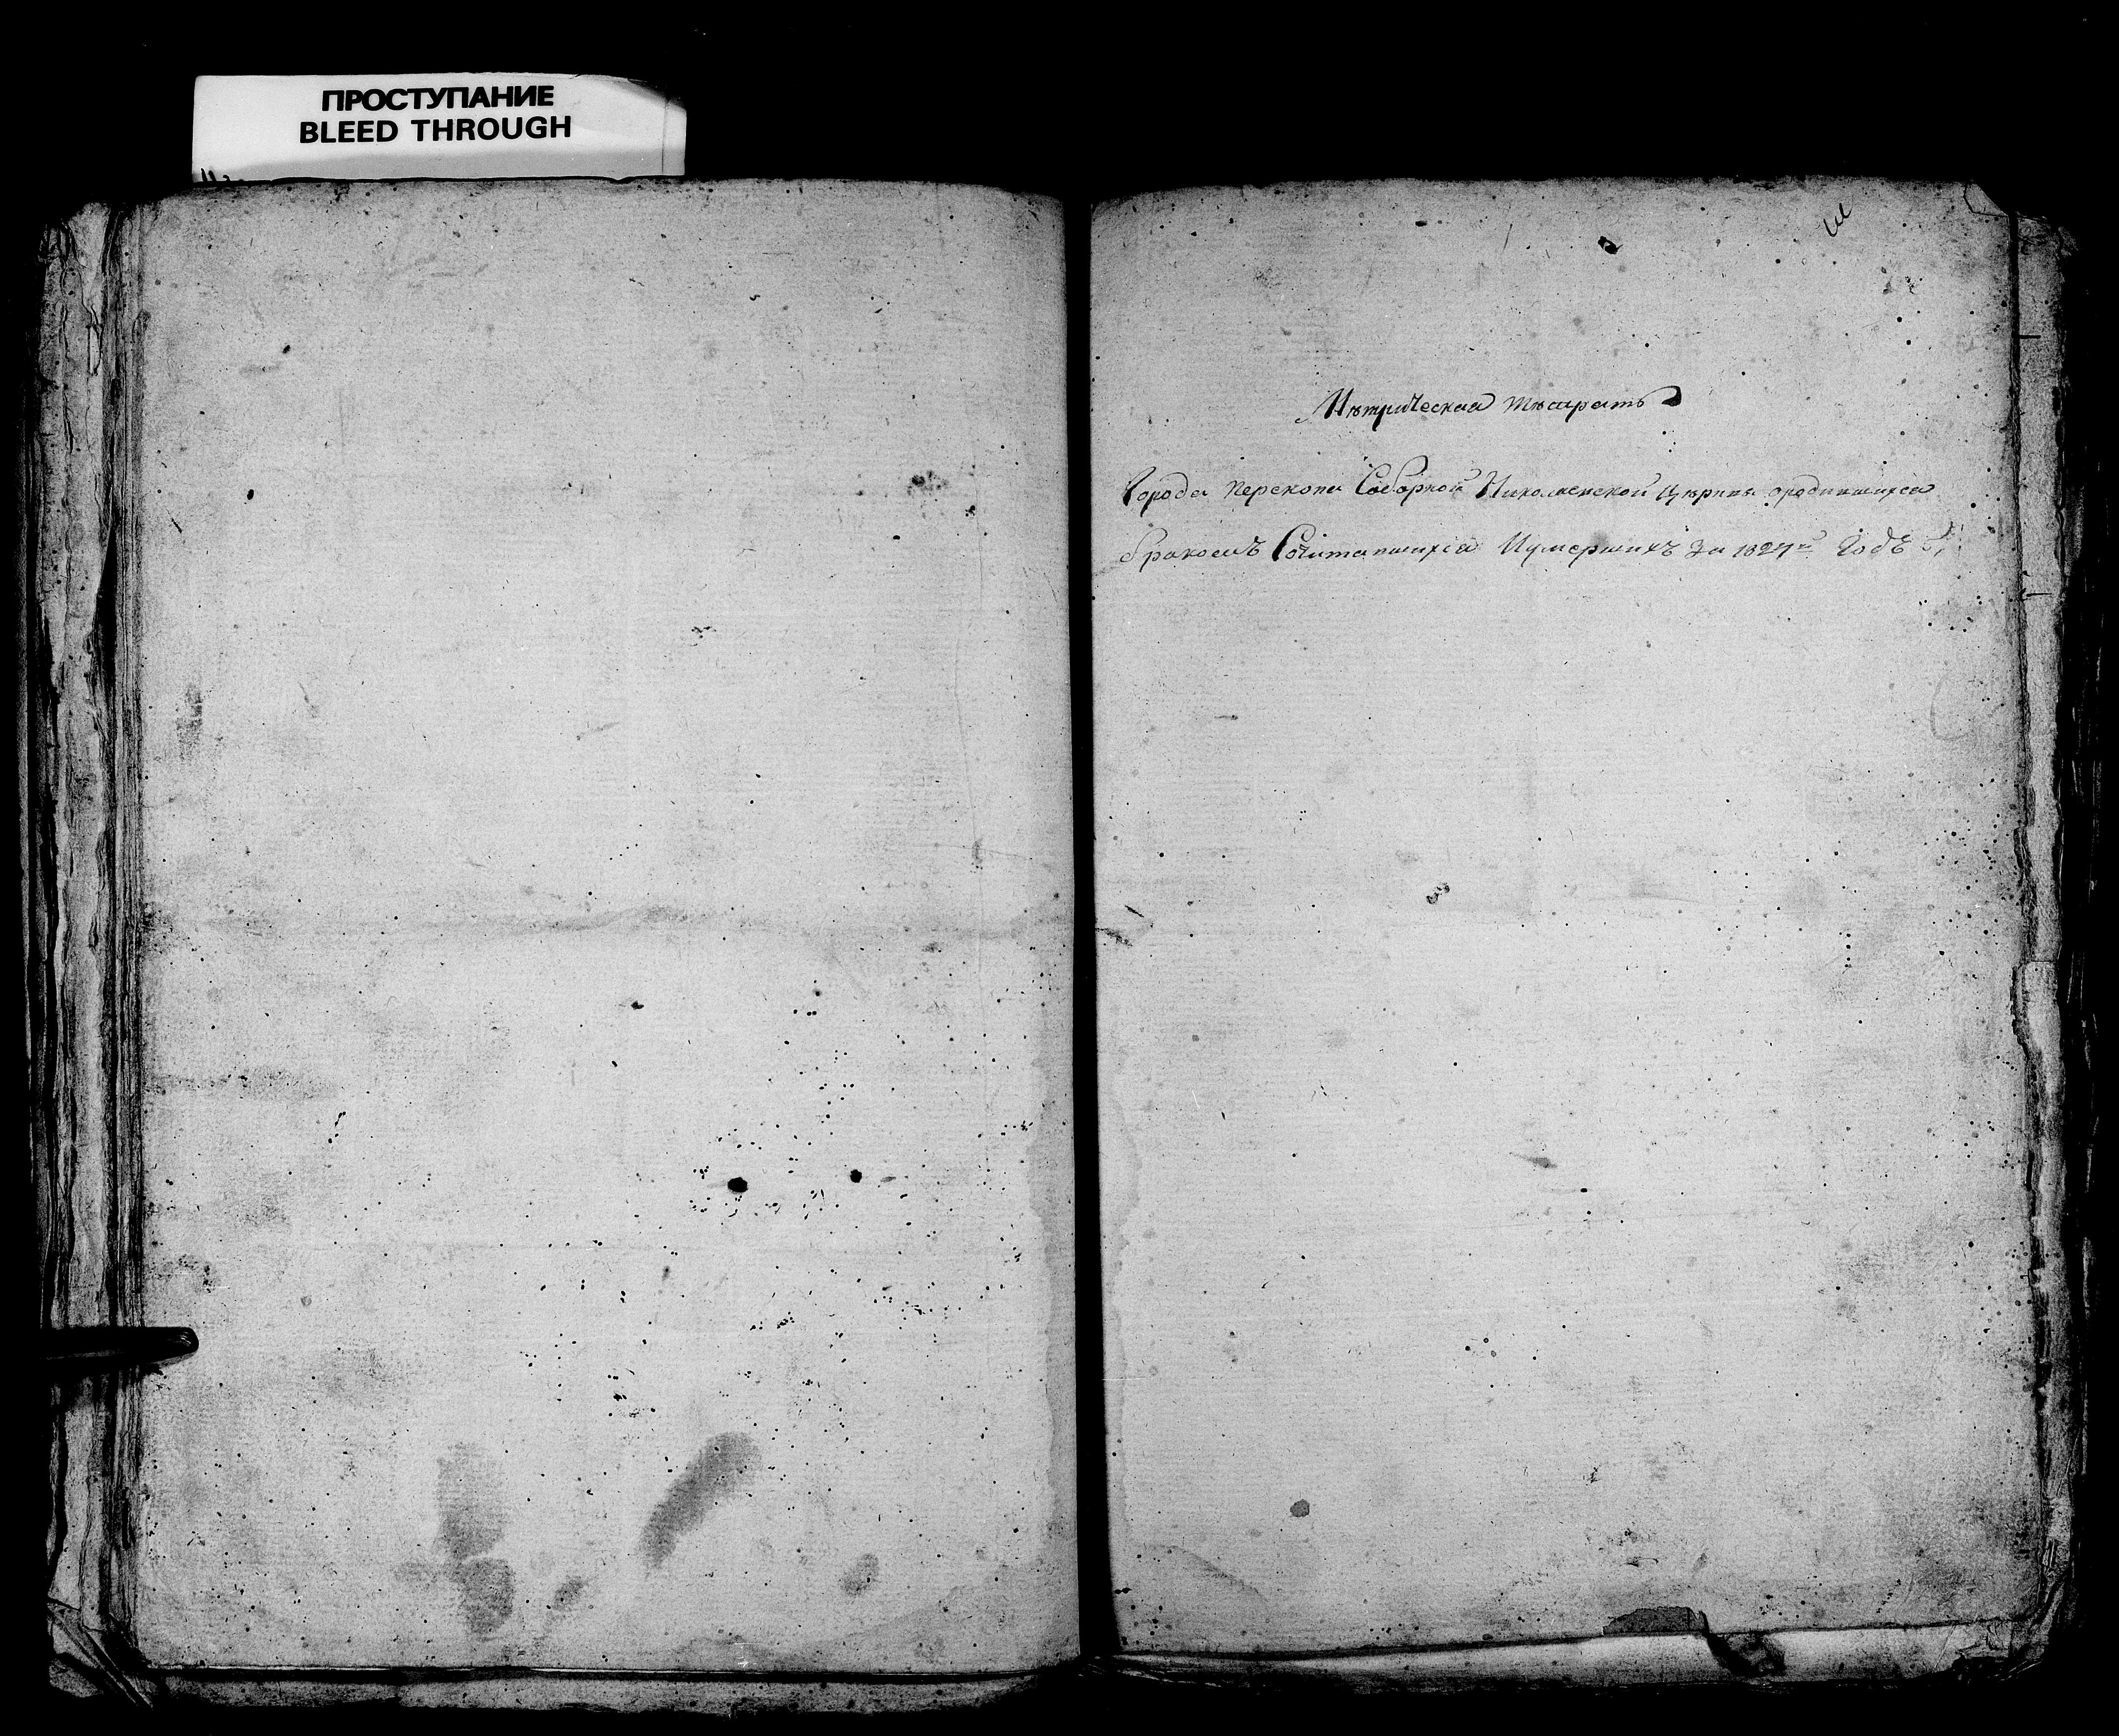 ПРОСТУПАНИЕ
BLEED THROUGH
Мѣтрическая тѣтрать
Города Перекопа Соборной Николаевской Цѣрквы ородившихся
бракомъ Сочитавшихся Иумершихъ За 1827й Годъ